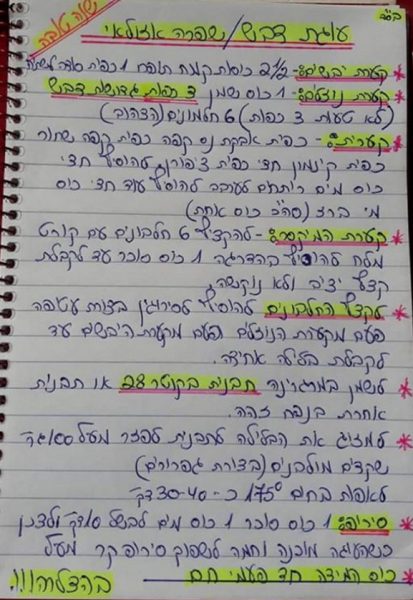 בס"ד
שנה טובה
עוגת דבש/שפרה אזולאי
* קערת יבשים:- 2½ כוסות קמח תופח 1 כפית סוכר וניל
* קערת נוזלים:- 1 כוס שמן 3 כפות גדושות דבש
(לא פחות מ 3 כפות) 6 חלמונים (הצהוב)
* קערית:- כפית אבקת נס קפה כפית קפה שחור
כפית קינמון חצי כפית ציפורן להוסיף חצי
כוס מים רותחים לערבב להוסיף עוד חצי כוס
מי ברז (סה"כ כוס אחת)
* קערת המיקסר:- להקציף 6 חלבונים עם קורט
מלח להוסיף בהדרגה 1 כוס סוכר עד לקבלת
קצף יציב ולא נוקשה.
* לקצף החלבונים להוסיף לסירוגין בצורת עטיפה
פעם מקערת הנוזלים ופעם מקערת היבשים עד
לקבלת בלילה אחידה.
* לשמן במרגרינה תבנית בקוטר 28 או תבנית
אחרת בנפח זהה.
* למזוג את הבלילה לתבנית לפזר מעל 100 גר'
שקדים מולבנים (בצורת גפרורים)
לאפות בחום 175° כ - 30-40 דק'
* סירופ: 1 כוס סוכר 1 כוס מים לבשל 10 דק' ולצנן
כשהעוגה מוכנה וחמה לשפוך סירופ קר מעל
* כוס המידה חד פעמי חם
בהצלחה!!!